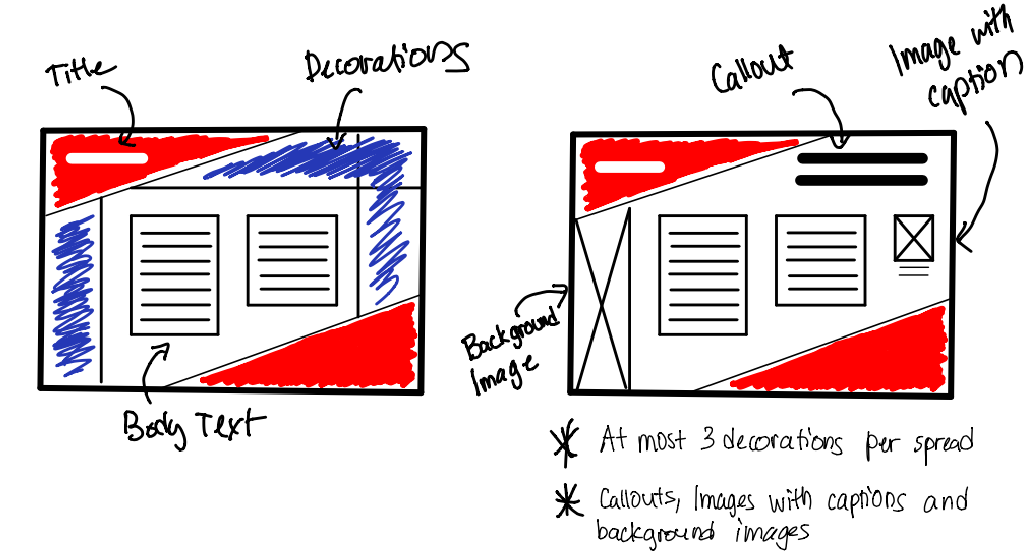 Title
Decorations
Callout
Image with
caption
Background
Image
Body Text
At most 3 decorations per spread
Callouts, Images with captions and
background images